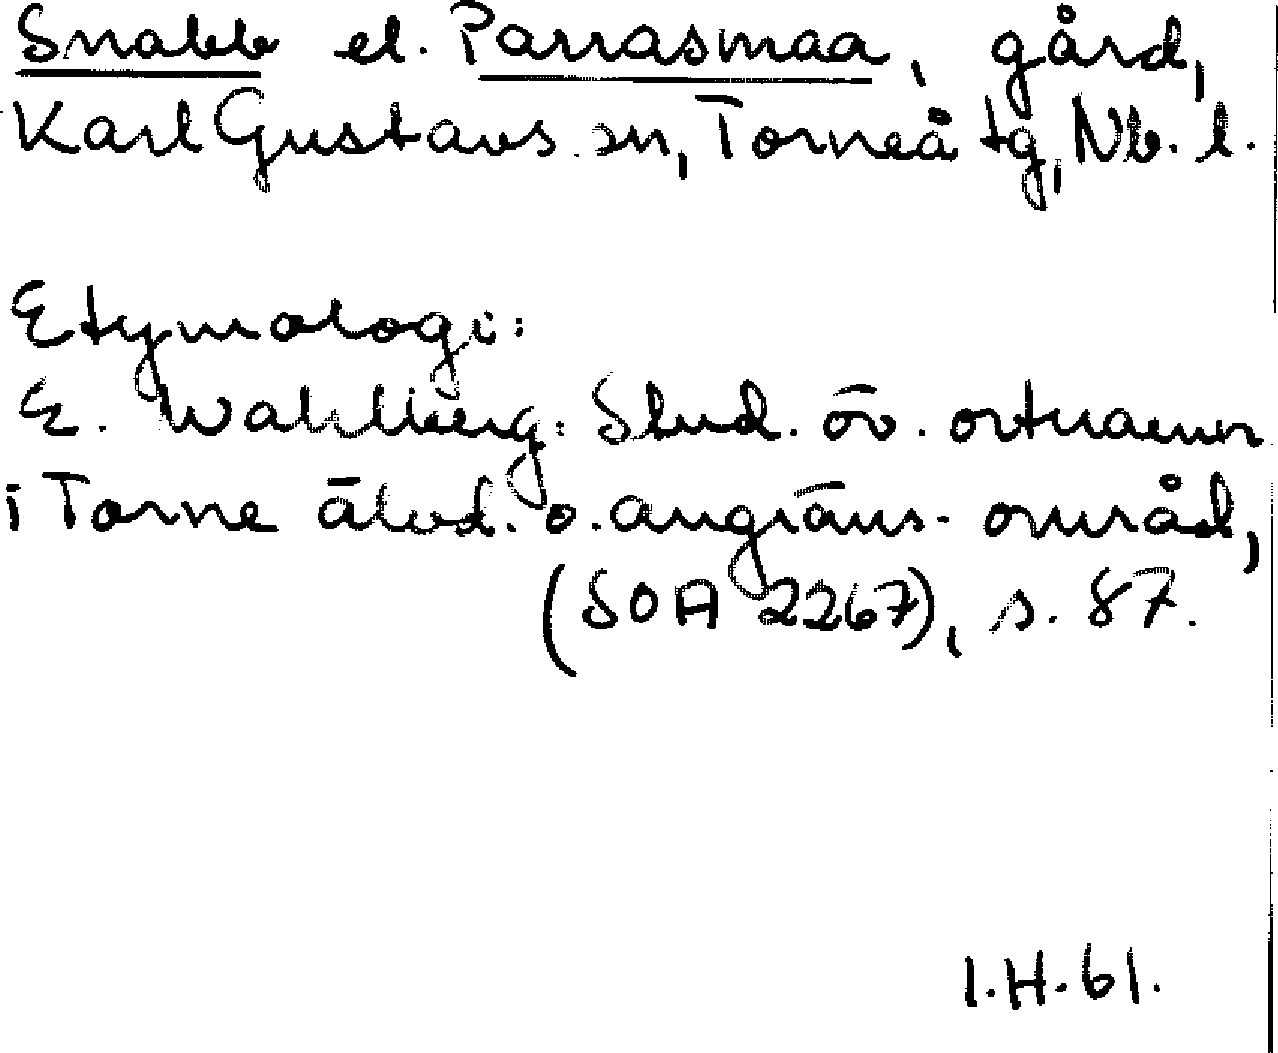 Snabb el. Parrasmaa, gård,
Karl Gustavs sn, Torneå tg, Nb. l.
Etymologi:
E. Wahlberg: Stud. öv. ortnamn
i Torne älvd. o. angräns. områd,
(SOA 2267), s. 87.
I.H.61.